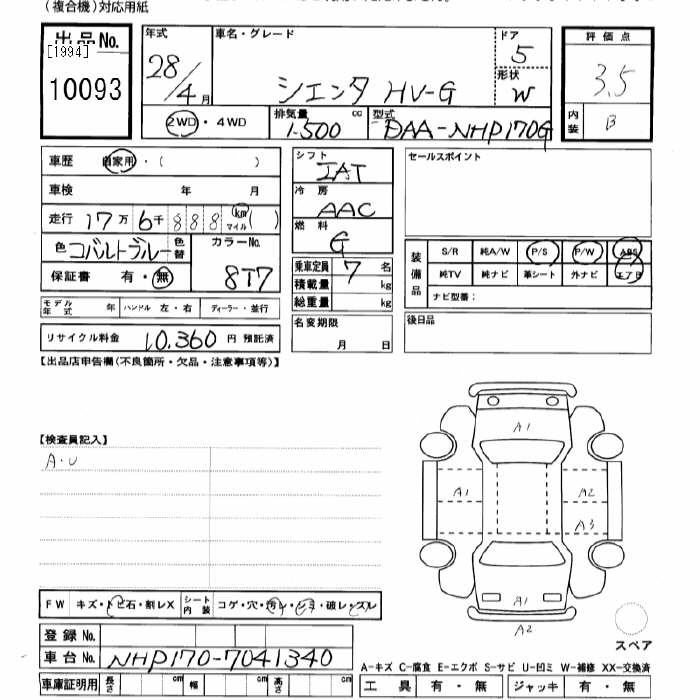 (複合機)対応用紙
出品No.
[1994]
10093
年式
28/4月
車名・グレード
シエンタ HV-G
ドア
5
形状
W
評価点
3.5
内装
B
2WD・4WD
排気量
1500 cc
型式
DAA-NHP170G
車歴 自家用・( )
車検 年 月
走行 17万6千888 (km マイル)( )
色 コバルトブルー 色替 カラーNo.
8T7
保証書 有・無
モデル年式 年 ハンドル 左・右 ディーラー・並行
リサイクル料金 10,360 円 預託済
シフト
IAT
冷房
AAC
燃料
G
乗車定員 7 名
積載量 kg
総重量 kg
名変期限
月 日
セールスポイント
装備品
S/R 純A/W P/S P/W ABS
純TV 純ナビ 革シート 外ナビ エアB
ナビ型番:
後日品
【出品店申告欄(不良箇所・欠品・注意事項等)】
【検査員記入】
A・U
A1
A1
A2
A3
A1
A2
スペア
FW キズ・トビ石・割レX シート内装 コゲ・穴・汚レ・シミ・破レ・スレ
登録No.
車台No. NHP170-7041340
車庫証明用 長さ cm 幅 cm 高さ cm
A-キズ C-腐食 E-エクボ S-サビ U-凹ミ W-補修 XX-交換済
工具 有・無 ジャッキ 有・無